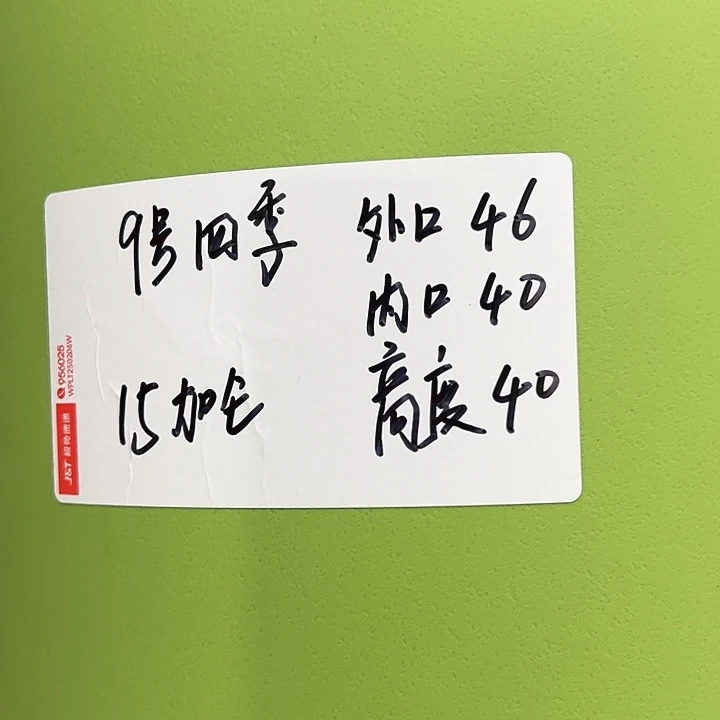 9号四季 外口 46
内口 40
15加仑 高度 40
J&T 极兔速递
956025
WPLT250206W